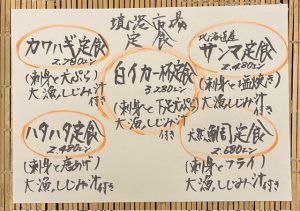 境港市場
定食
カワハギ定食
2.780エン
(刺身と天ぷら)
大漁しじみ汁
付き
北海道産
サンマ定食
2.480エン
(刺身と塩焼き)
大漁しじみ汁
付き
白イカ一杯定食
3.280エン
(刺身と下足天ぷら)
大漁しじみ汁
付き
ハタハタ定食
2.480エン
(刺身と唐あげ)
大漁しじみ汁付き
鯛定食
2.680エン
(刺身とフライ)
大漁しじみ汁付き